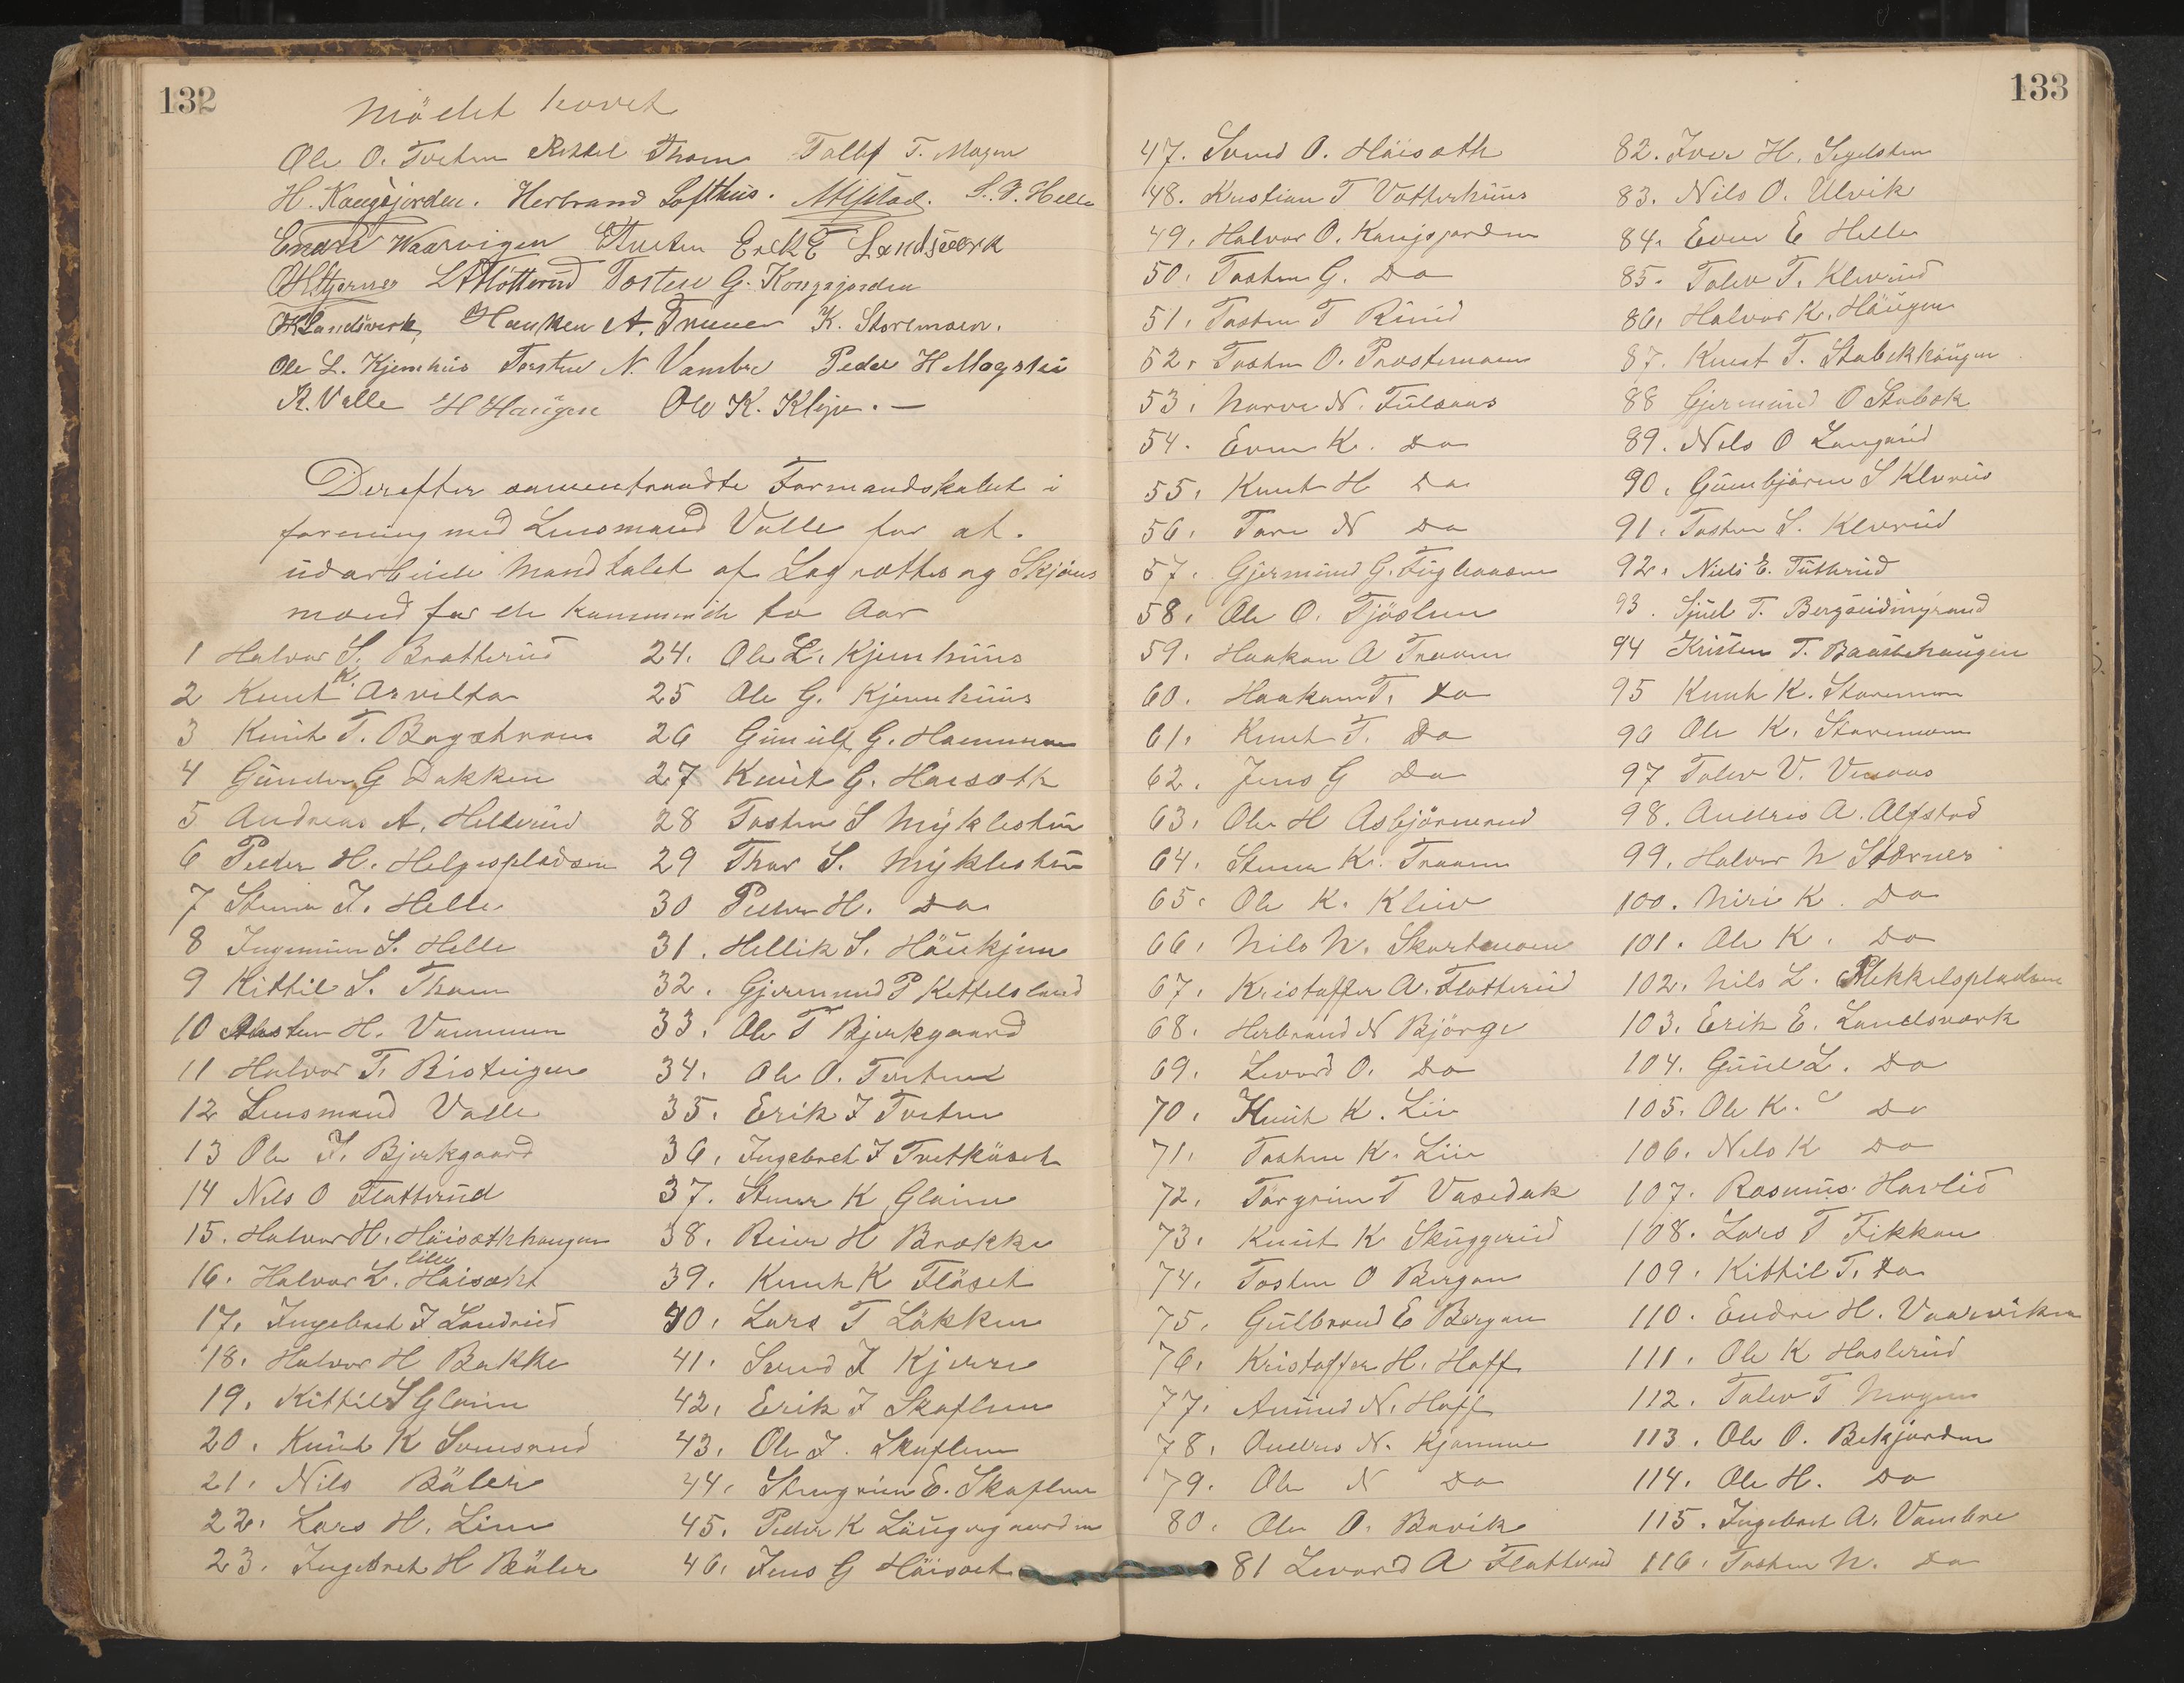 132
Mödet hævet
Ole O. Tveten Kittel Thom Tallef T. Mogen
H. Kongsjorden. Herbrand Lofthus. S. P. Helle
Endre Waarvigen Erik E Landsværk
OHStjernes Tosten G. Kongsjorden
OKLandsverk, Haaken A. Traaen K. Storemoen.
Ole L. Kjemhus Torsten N. Vambre Peder H Mogstei
K. Valle H Haugen Ole K. Kleiv. —
Derefter sammentraadte Formandskabet i
forening med Lensmand Valle for at.
udarbeide Mandtalet af Lagrettes og Skjöns
mænd for de kommende to Aar
1 Halvor S. Bratterud
2 Knut K. Arvelta
3 Knut T. Bagstraen
4 Gunder G Dokken
5 Andreas A. Hellerud
6 Peder H. Helgespladsen
7 Steinar J. Helle
8 Ingemun S. Helle
9 Kittil S. Thom
10 Austen H. Vammen
11 Halvor T. Bisteigen
12 Lensmand Valle
13 Ole J. Bjerkgaard
14 Nils O Flatterud
15. Halvor H. Höisæthhaugen
16. Halvor L. lille Höisæth
17. Ingebret J Landrud
18. Halvor H Bakke
19. Kittil S Glaim
20. Knut K Svensrud
21. Nils Böler
22. Lars H. Lien
23. Ingebret H Böler
24. Ole L. Kjemhuus
25 Ole G. Kjemhuus
26 Gunulf G. Hammeren
27 Knut G. Haisæth
28 Tosten S Myklestu
29 Thor S. Myklestu
30 Peder H. Do
31. Hellik S. Höukjen
32. Gjermund P Kettelsland
33. Ole T Bjerkgaard
34. Ole O. Tveten
35. Erik J Tveten
36. Ingebret J Tvetküset
37. Stener K Glaim
38. Reier H Brække
39. Knut K Flöset
40. Lars T Lökken
41. Svend J Kjerre
42. Erik J Skaflem
43. Ole J. Skaflem
44. Stengrim E. Skaflem
45. Peder K Langegaarden
46. Jens G Höisæt
133
47. Svend O. Höisæth
48. Kristian T Votterhuus
49. Halvor O. Kongsjorden
50. Tosten G. Do
51. Tosten T Ruud
52. Tosten O. Præstemoen
53. Narve N. Fulsaas
54. Even K. Do
55. Knut H Do
56. Tore N Do
57. Gjermund G. Fuglesaasen
58. Ole O. Fjöslien
59. Haakon A Traaen
60. Haakon T. Do
61. Knut T. Do
62. Jens G Do
63. Ole H Asbjörnrud
64. Stener K. Traaen
65. Ole K. Kleiv
66. Nils N. Skartmoen
67. Kristoffer A. Flatterud
68. Herbrand N Björge
69. Levord O. Do
70. Knut K. Lii
71. Tosten K. Lii
72. Torgrim T Vasedak
73. Knut K Skuggerud
74. Tosten O Bergan
75. Gulbrand E Bergan
76. Kristoffer H. Hoff
77. Amund N. Hoff
78. Andres N. Kjomme
79. Ole N Do
80. Ole O. Bævik
81 Levord A Flatterud
82. Iver H. Segelsten
83. Nils O. Ulvik
84. Even E Helle
85. Tolev T. Kleverud
86. Halvor K. Haugen
87. Knut T. Stabekhaugen
88 Gjermund O Stabæk
89. Nils O Langerud
90. Gunbjörn S Kleverud
91. Tosten S. Kleverud
92. Niels E. Tuthrud
93. Sjuel T. Bergseidmyrand
94 Kristen T. Baastehaugen
95 Knut K. Storemoen
96 Ole K. Storemoen
97 Tolev V. Vesaas
98. Andreis A. Alfstad
99. Halvor N Stærnes
100. Niri K. Do
101. Ole K. Do
102. Nils L. Mekkelspladsen
103. Erik E. Landsværk
104. Guul L. Do
105. Ole K. Do
106. Nels K Do
107. Rasmus Havlid
108. Lars T Fikkan
109. Kittil T. Do
110. Endre H. Vaarviken
111. Ole K Haslerud
112. Tolev T Mogen
113. Ole O. Bekjorden
114. Ole H. Do
115. Ingebret A. Vambre
116. Tosten N. Do